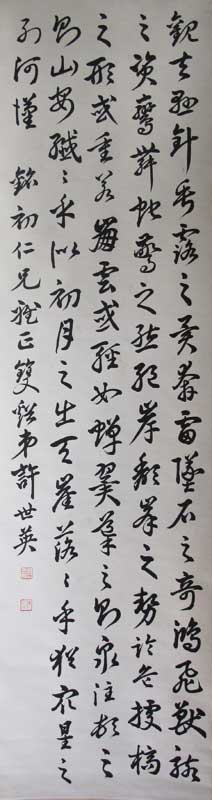 觀夫懸針垂露之異奔雷墜石之奇鴻飛獸駭
之資鸞舞蛇驚之態絕岸頹峯之勢臨危據槁
之形或重若崩雲或輕如蟬翼導之則泉注頓之
則山安纖〻乎似初月之出天崖落〻乎猶衆星之
列河漢 銘初仁兄雅正雙谿弟許世英